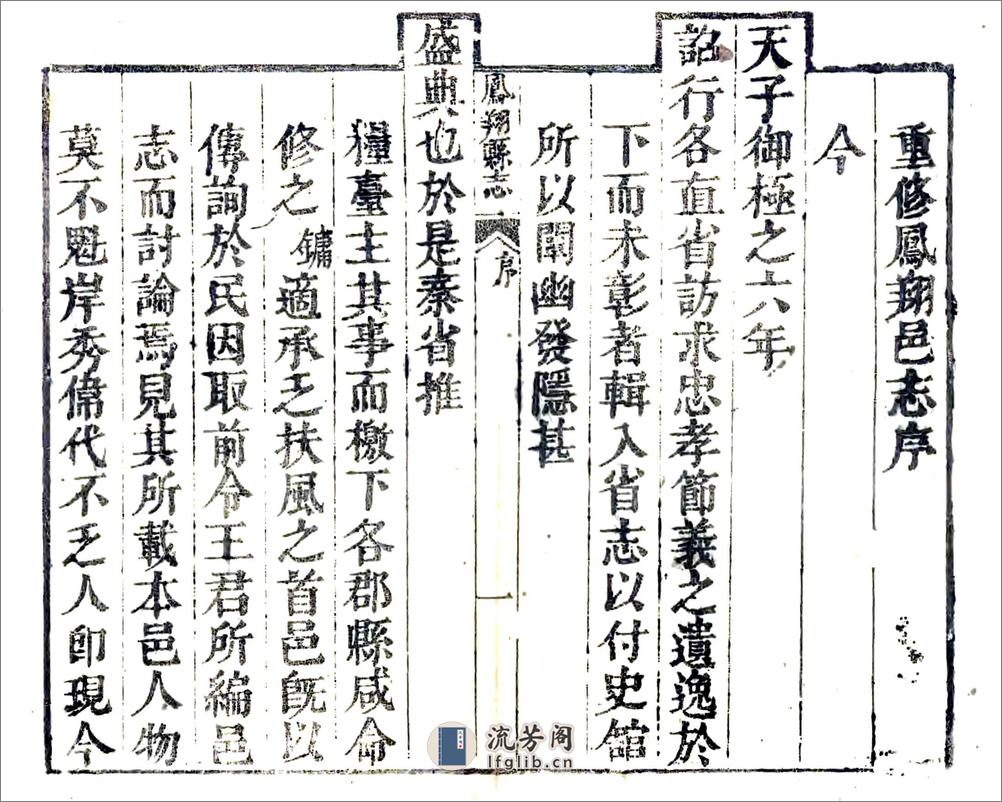 重修鳳翔邑志序
今
天子御極之六年
詔行各直省訪求忠孝節義之遺逸於
下而未彰者輯入省志以付史館
所以闡幽發隱甚
鳳翔縣志
序
一
盛典也於是秦省推
糧臺主其事而檄下各郡縣咸命
修之鏞適承乏扶風之首邑旣以
傳詢於民因取前令王君所編邑
志而討論焉見其所載本邑人物
莫不魁岸秀偉代不乏人卽現今
流芳阁
lfglib.cn